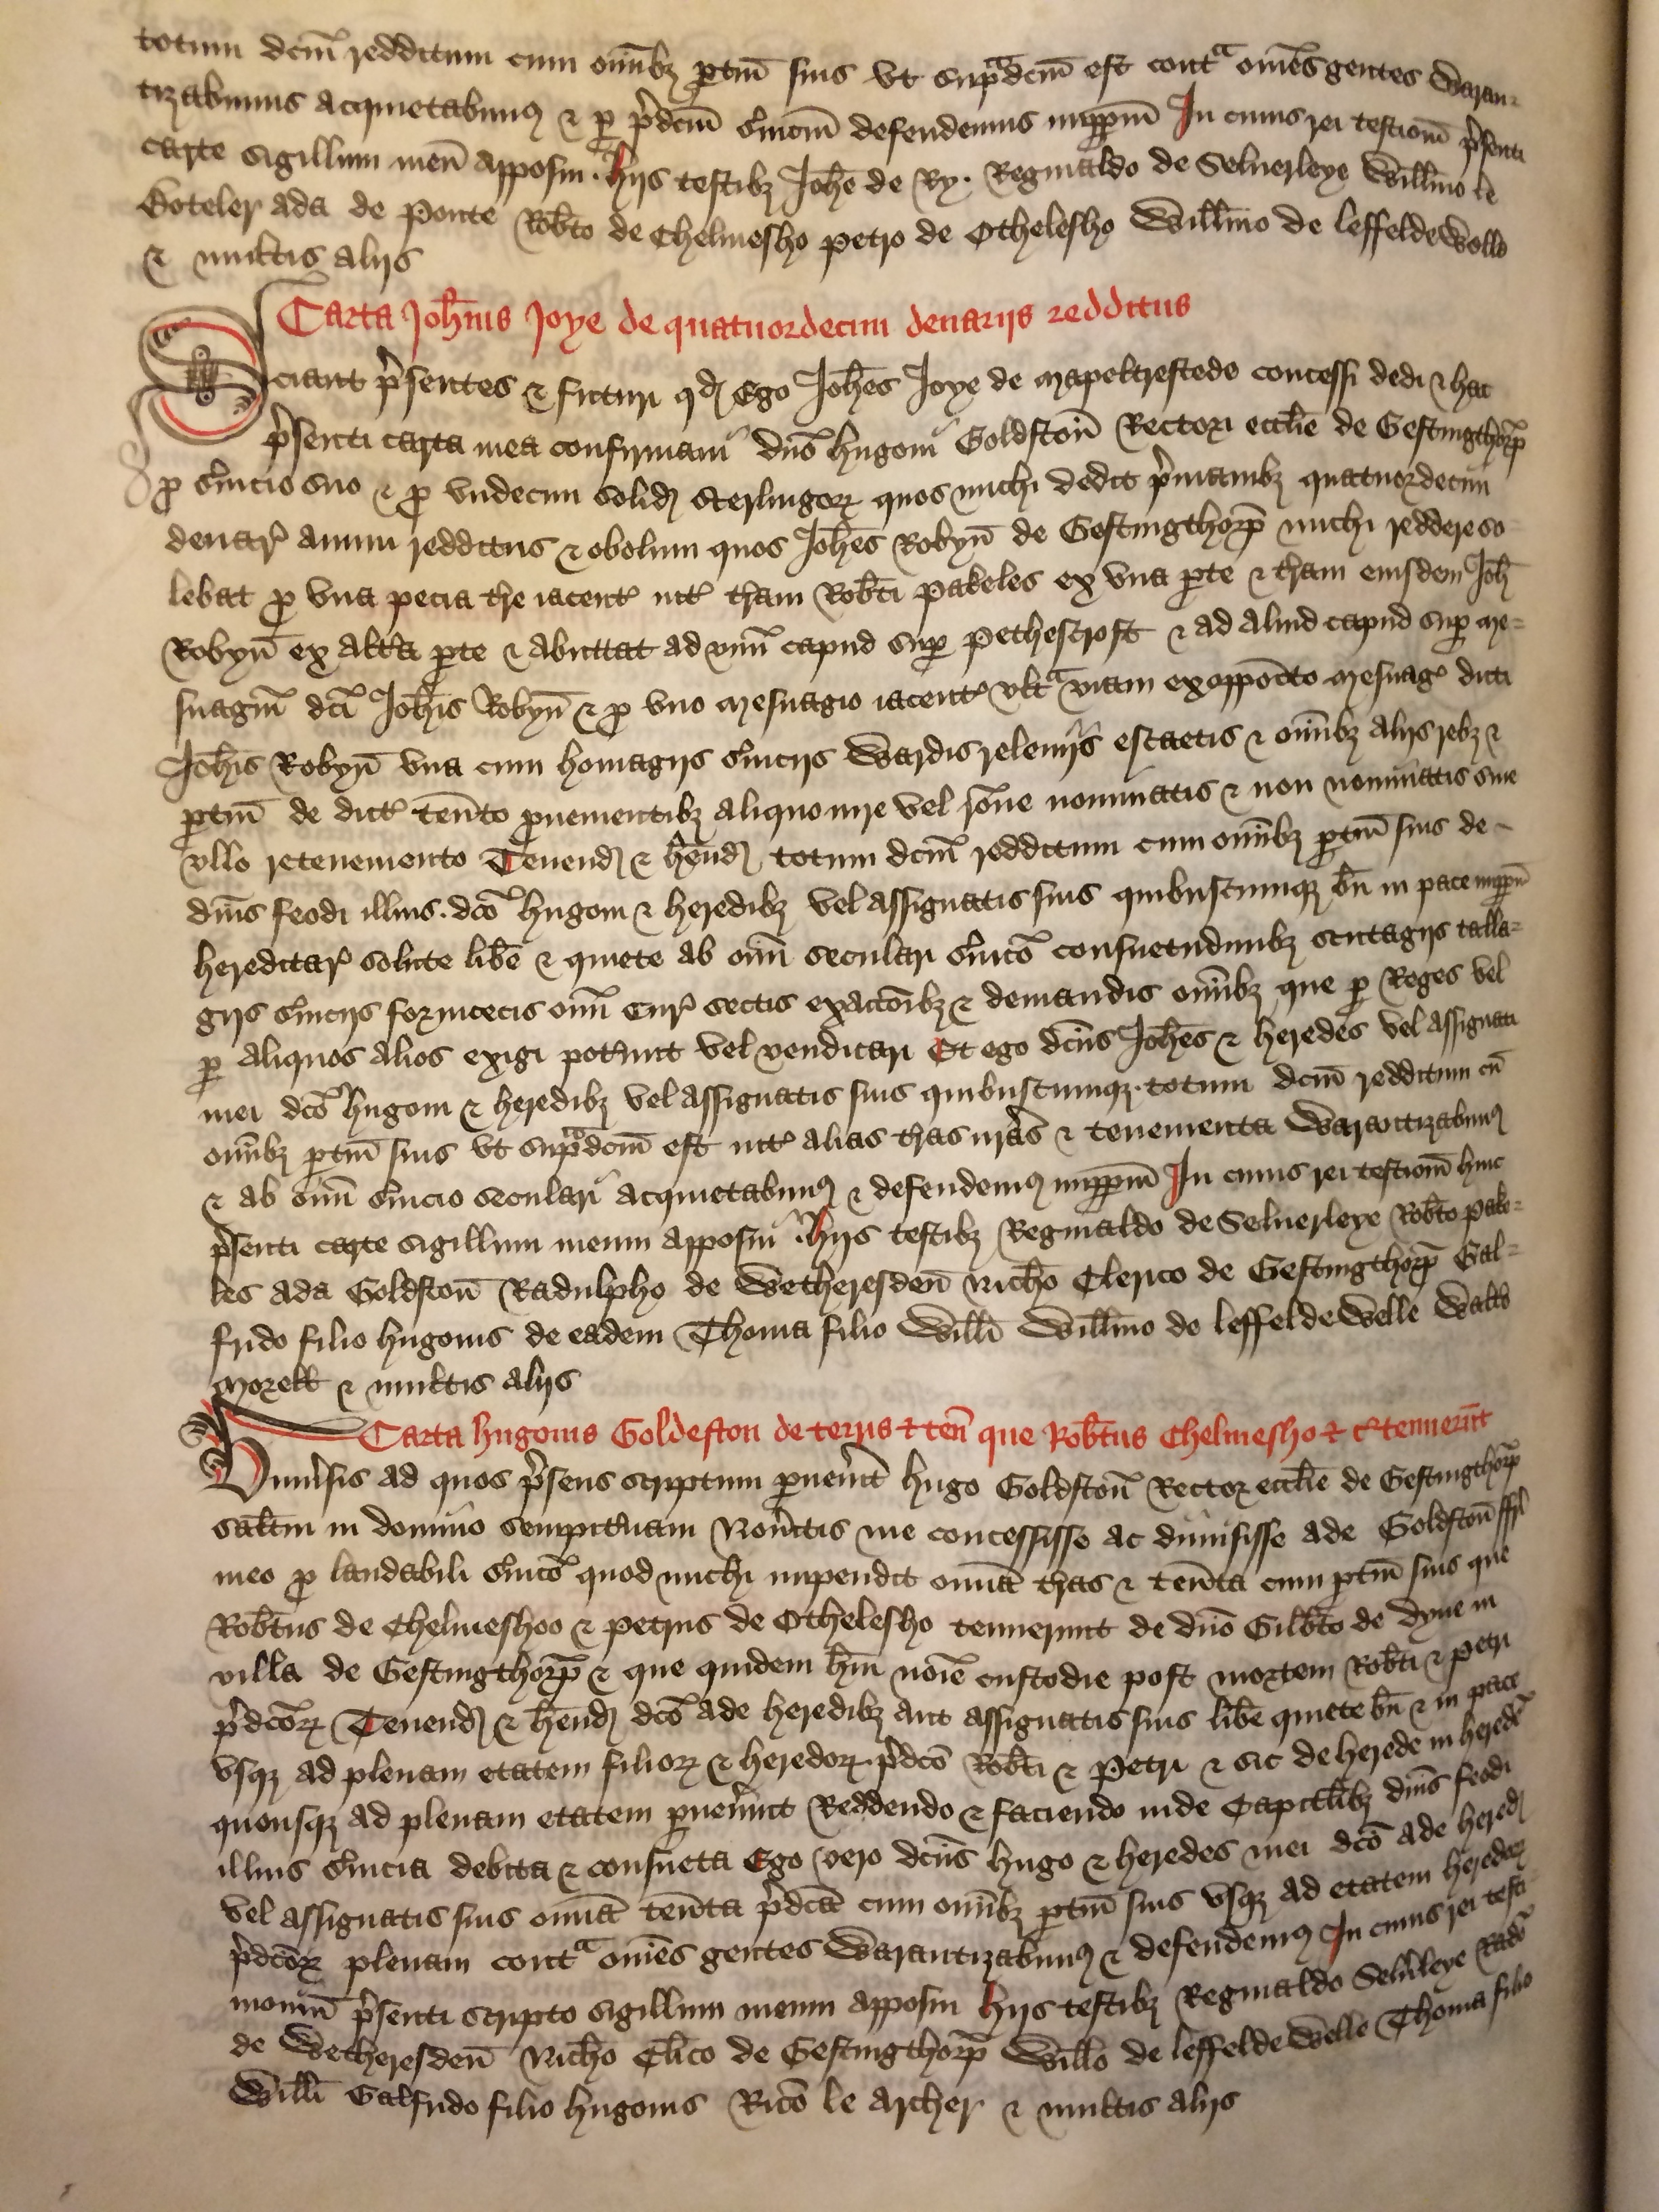 totum dcm̄ redditum cum om̄ibȝ ptin̄ suis vt supᵃdcm̄ est contᵃ om̄es gentes Waran-
tizabimus acquietabimꝰ & p p̄dcm̄ s̄uicm̄ defendemus imppm̄ In cuius rei testiom̄ p̄senti
carte sigillum meū apposui. hijs testibȝ Joh̄e de Ry. Reginaldo de Seluerleye Willm̄o le
Boteler ada de Ponte Rob̄to de Chelmesho petro de Othelesho Willm̄o de leffeldewelle
& multis alijs
Carta Joh̄nis Joye de quatuordecim denarijs redditus
Sciant p̄sentes & futuri qd Ego Joh̄es Joye de mapeltrestede concessi dedi & hac
p̄senti carta mea confirmaui dn̄o hugoni Goldston̄ Rectori eccl̄ie de Gestingthorp̄
p s̄uicio suo & p vndecim solid sterlingoꝝ quos michi dedit p̄manibȝ quatuordecim
denar̄ annui redditus & obolum quos Joh̄es Robyn̄ de Gestingthorp̄ michi reddere so-
lebat p vna pecia tr̄e iacent̄ int̄ tr̄am Rob̄ti pakeles ex vna pte & tr̄am eiusdem Joh̄
Robyn̄ ex alt̄a pte & abuttat ad vnū capud sup pethescroft & ad aliud capud sup me-
suagiū dc̄i Joh̄is Robyn̄ & p vno mesuagio iacent̄ vltᵃ viam ex opp̄oito mesuaḡ dicti
Joh̄is Robyn̄ vna cum homagijs s̄uicijs Wardis releuijs escaetis & om̄ibȝ alijs rebȝ &
ptin̄ de dict̄ ten̄to puenientibȝ aliquo iure vel rōne nominatis & non nominatis sine
vllo retenemento Tenend & h̄end totum dcm̄ redditum cum om̄ibȝ ptin̄ suis de
dn̄is feodi illius. dc̄o hugoni & heredibȝ vel assignatis suis quibuscumqȝ bn̄ in pace imppm̄
hereditar̄ solute lib̄e & quiete ab om̄i seculari s̄uico consuetudinibȝ scutagijs talla-
gijs s̄uicijs forincecis om̄i Cur̄ sectis exactōibȝ & demandis om̄ibȝ que p Reges vel
p aliquos alios exigi pot̄unt vel vendicari Et ego dcūs Joh̄es & heredes vel assignati
mei dc̄o hugoni & heredibȝ vel assignatis suis quibuscumqȝ. totum dcm̄ redditum cū
om̄ibȝ ptin̄ suis vt supᵃdcm̄ est int̄ alias tr̄as nr̄as & tenementa Warantizabimꝰ
& ab om̄i s̄uicio seculari acquietabimꝰ & defendemꝰ imppm̄ In cuius rei testiom̄ huic
p̄senti carte sigillum meum apposui. hijs testibȝ Reginaldo de Seluerleye Rob̄to pake-
les ada Goldston̄ Radulpho de Wetheresden̄ Nich̄o Clerico de Gestingthorp̄ Gal-
frido filio hugonis de eadem Thoma filio Will̄i Willm̄o de leffeldewelle Walt̄o
Morell & multis alijs
Carta hugonis Goldeston de terris & ten̄ que Rob̄tus Chelmesho & c̄ tenuerūt
Vniu̅sis ad quos p̄sens scriptum puen̄it hugo Goldston̄ Rector eccl̄ie de Gestingthorp̄
salt̄m in domino sempit̄nam Nou̅itis me concessisse ac dimisisse ade Goldston̄
meo p laudabili s̄uico quod michi impendit om̄ia tr̄as & ten̄ta cum ptin̄ suis que
Rob̄tus de Chelmeshoo & petrus de Othelesho tenuerunt de dn̄o Gilb̄to de dyne in
villa de Gestingthorp̄ & que quidem h̄ui noīe custodie post mortem Rob̄ti & petri
p̄dcōꝝ Tenend & h̄end dc̄o ade heredibȝ aut assignatis suis lib̄e quiete bn̄ & in pace
vsqȝ ad plenam etatem filioꝝ & heredoꝝ. p̄dcō Rob̄ti & Petri & sic de herede in hered̄
quousqȝ ad plenam etatem puen̄unt Reddendo & faciendo inde Capitl̄ibȝ dn̄is feodi
illius s̄uicia debita & consueta Ego vero dcūs hugo & heredes mei dc̄o ade hered
vel assignatis suis om̄ia ten̄ta p̄dcā cum om̄ibȝ ptin̄ suis vsqȝ ad etatem heredoꝝ
p̄dcōꝝ plenam contᵃ om̄es gentes Warantizabimꝰ & defendemꝰ In cuius rei testi
moniū p̄senti scripto sigillum meum apposui hijs testibȝ Reginaldo Selu̅leye Rad̄o
de Wetheresden̄ Nich̄o Cl̄ico de Gestingthorp̄ Will̄o de leffeldewelle Thoma filio
Will̄i Galfrido filio hugonis Ric̄o le Archer & multis alijs